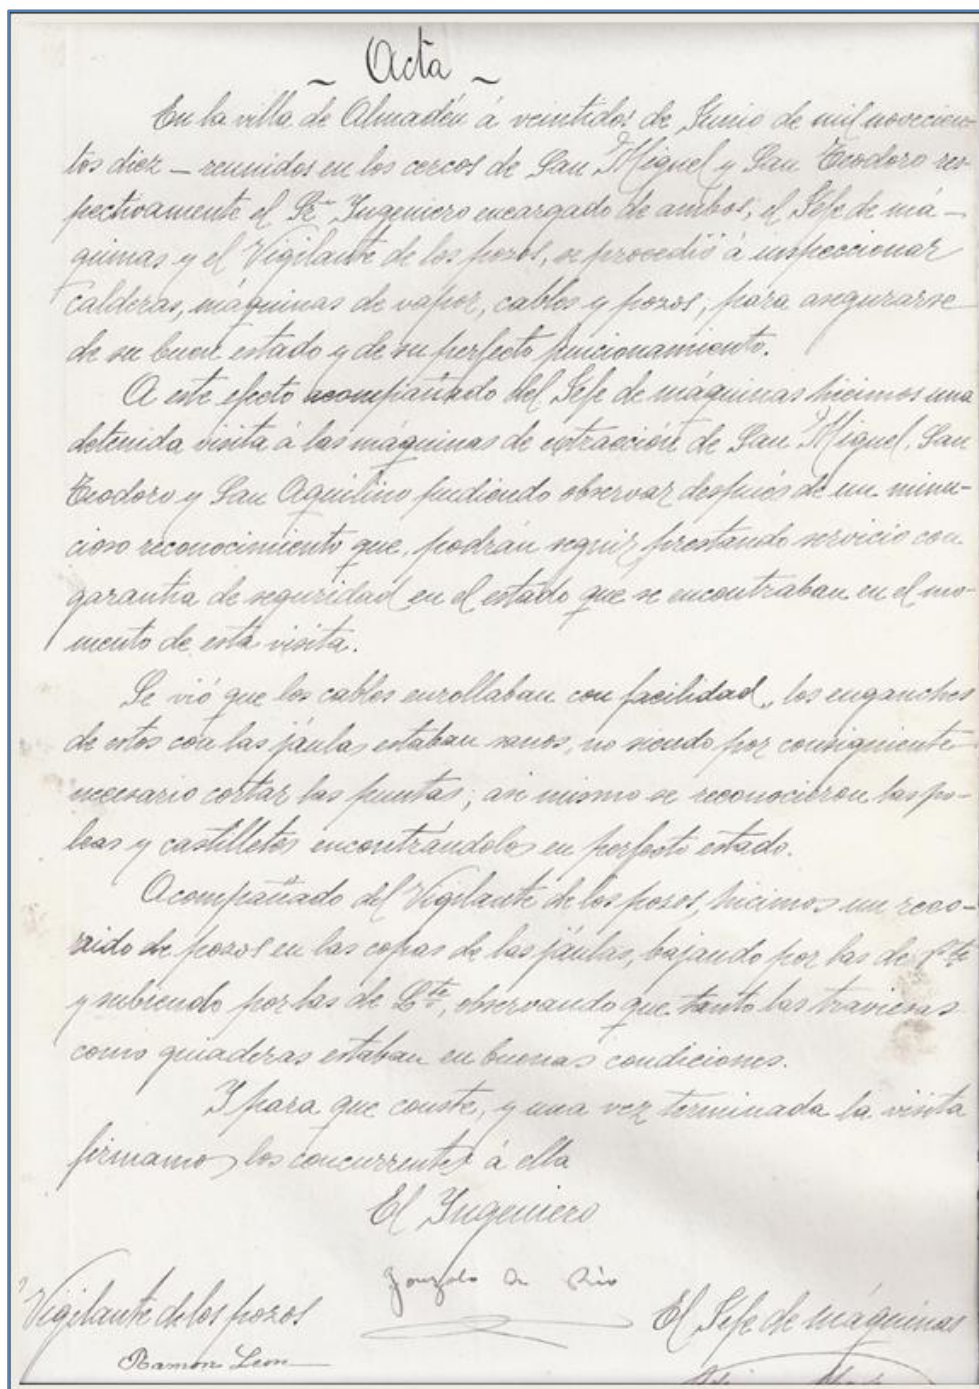 ~ Acta ~
En la villa de Almadén á veintidos de Junio de mil novecien-
tos diez — reunidos en los cercos de San Miguel y San Teodoro res-
pectivamente el Sr. Ingeniero encargado de ambos, el Jefe de má-
quinas y el Vigilante de los pozos, se procedió á inspeccionar
calderas, máquinas de vapor, cables y pozos, para asegurarse
de su buen estado y de su perfecto funcionamiento.
A este efecto acompañado del Jefe de máquinas hicimos una
detenida visita á las máquinas de extracción de San Miguel, San
Teodoro y San Aquilino pudiendo observar después de un minu-
cioso reconocimiento que, podrán seguir prestando servicio con
garantía de seguridad en el estado que se encontraban en el mo-
mento de esta visita.
Se vió que los cables enrollaban con facilidad, los enganches
de estos con las jáulas estaban sanos, no siendo por consiguiente
necesario cortar las puntas; asi mismo se reconocieron las po-
leas y castilletes encontrándolos en perfecto estado.
Acompañado del Vigilante de los pozos, hicimos un reco-
rrido de pozos en las copas de las jáulas, bajando por las de
y subiendo por las de, observando que tanto las traviesas
como guiaderas estaban en buenas condiciones.
Y para que conste, y una vez terminada la visita
firmamos los concurrentes á ella
El Ingeniero
Gonzalo del Río
Vigilante de los pozos
El Jefe de máquinas
Ramon Leon